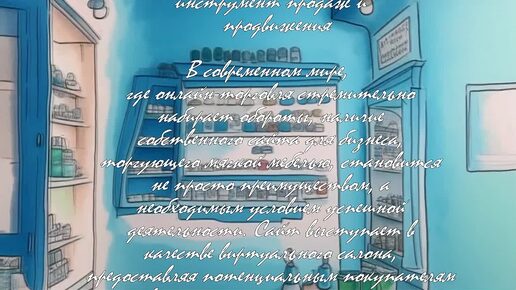 инструмент продаж и
продвижения
В современном мире,
где онлайн-торговля стремительно
набирает обороты, наличие
собственного сайта для бизнеса,
торгующего мягкой мебелью, становится
не просто преимуществом, а
необходимым условием успешной
деятельности. Сайт выступает в
качестве виртуального салона,
предоставляя потенциальным покупателям